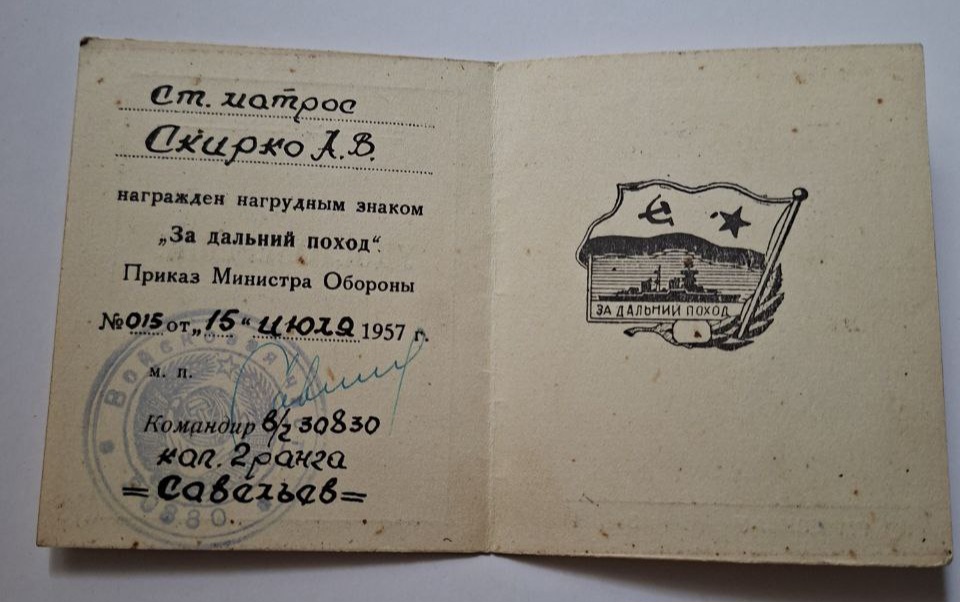 Ст. матрос
Скирко А.В.
награжден нагрудным знаком
„За дальний поход“.
Приказ Министра Обороны
№ 015 от „15“ июля 1957 г.
м. п.
Командир в/ч 30830
кап. 2 ранга
=Савельев=
Войсковая
ЗА ДАЛЬНИЙ ПОХОД